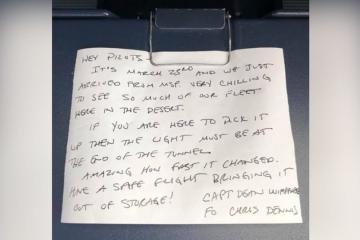 HEY PILOTS -
IT'S MARCH 23RD AND WE JUST
ARRIVED FROM MSP. VERY CHILLING
TO SEE SO MUCH OF OUR FLEET
HERE IN THE DESERT.
IF YOU ARE HERE TO PICK IT
UP THEN THE LIGHT MUST BE AT
THE END OF THE TUNNEL.
AMAZING HOW FAST IT CHANGED.
HAVE A SAFE FLIGHT BRINGING IT
OUT OF STORAGE! CAPT DEAN
FO CHRIS DENNIS